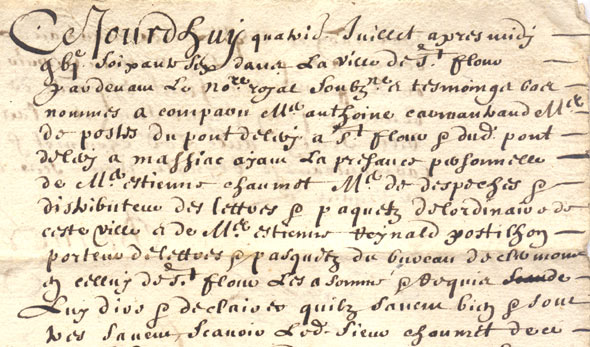 Ce Jourdhuy quatrie Juillet apres midy
gbc soixante six dans La ville de St flour
pardevant Le nore royal soubzne & tesmoingz bas
nommes a comparu Mre anthoine Me
de postes du pont de lery a St flour & dud pont
delery a massiac ayant La presance personnelle
de Mre estienne chaumet Me de despeches &
distributeur des lettres & paquetz de lordinaire de
ceste ville & de Mre estienne Reynald postilhon
porteur de lettres & pasquetz du bureau de clermont
a celluy de St flour Les a somme & Requis
Luy dire & declairer quilz sauent bien &
sauent scauoir Led Sieur chaumet de ce